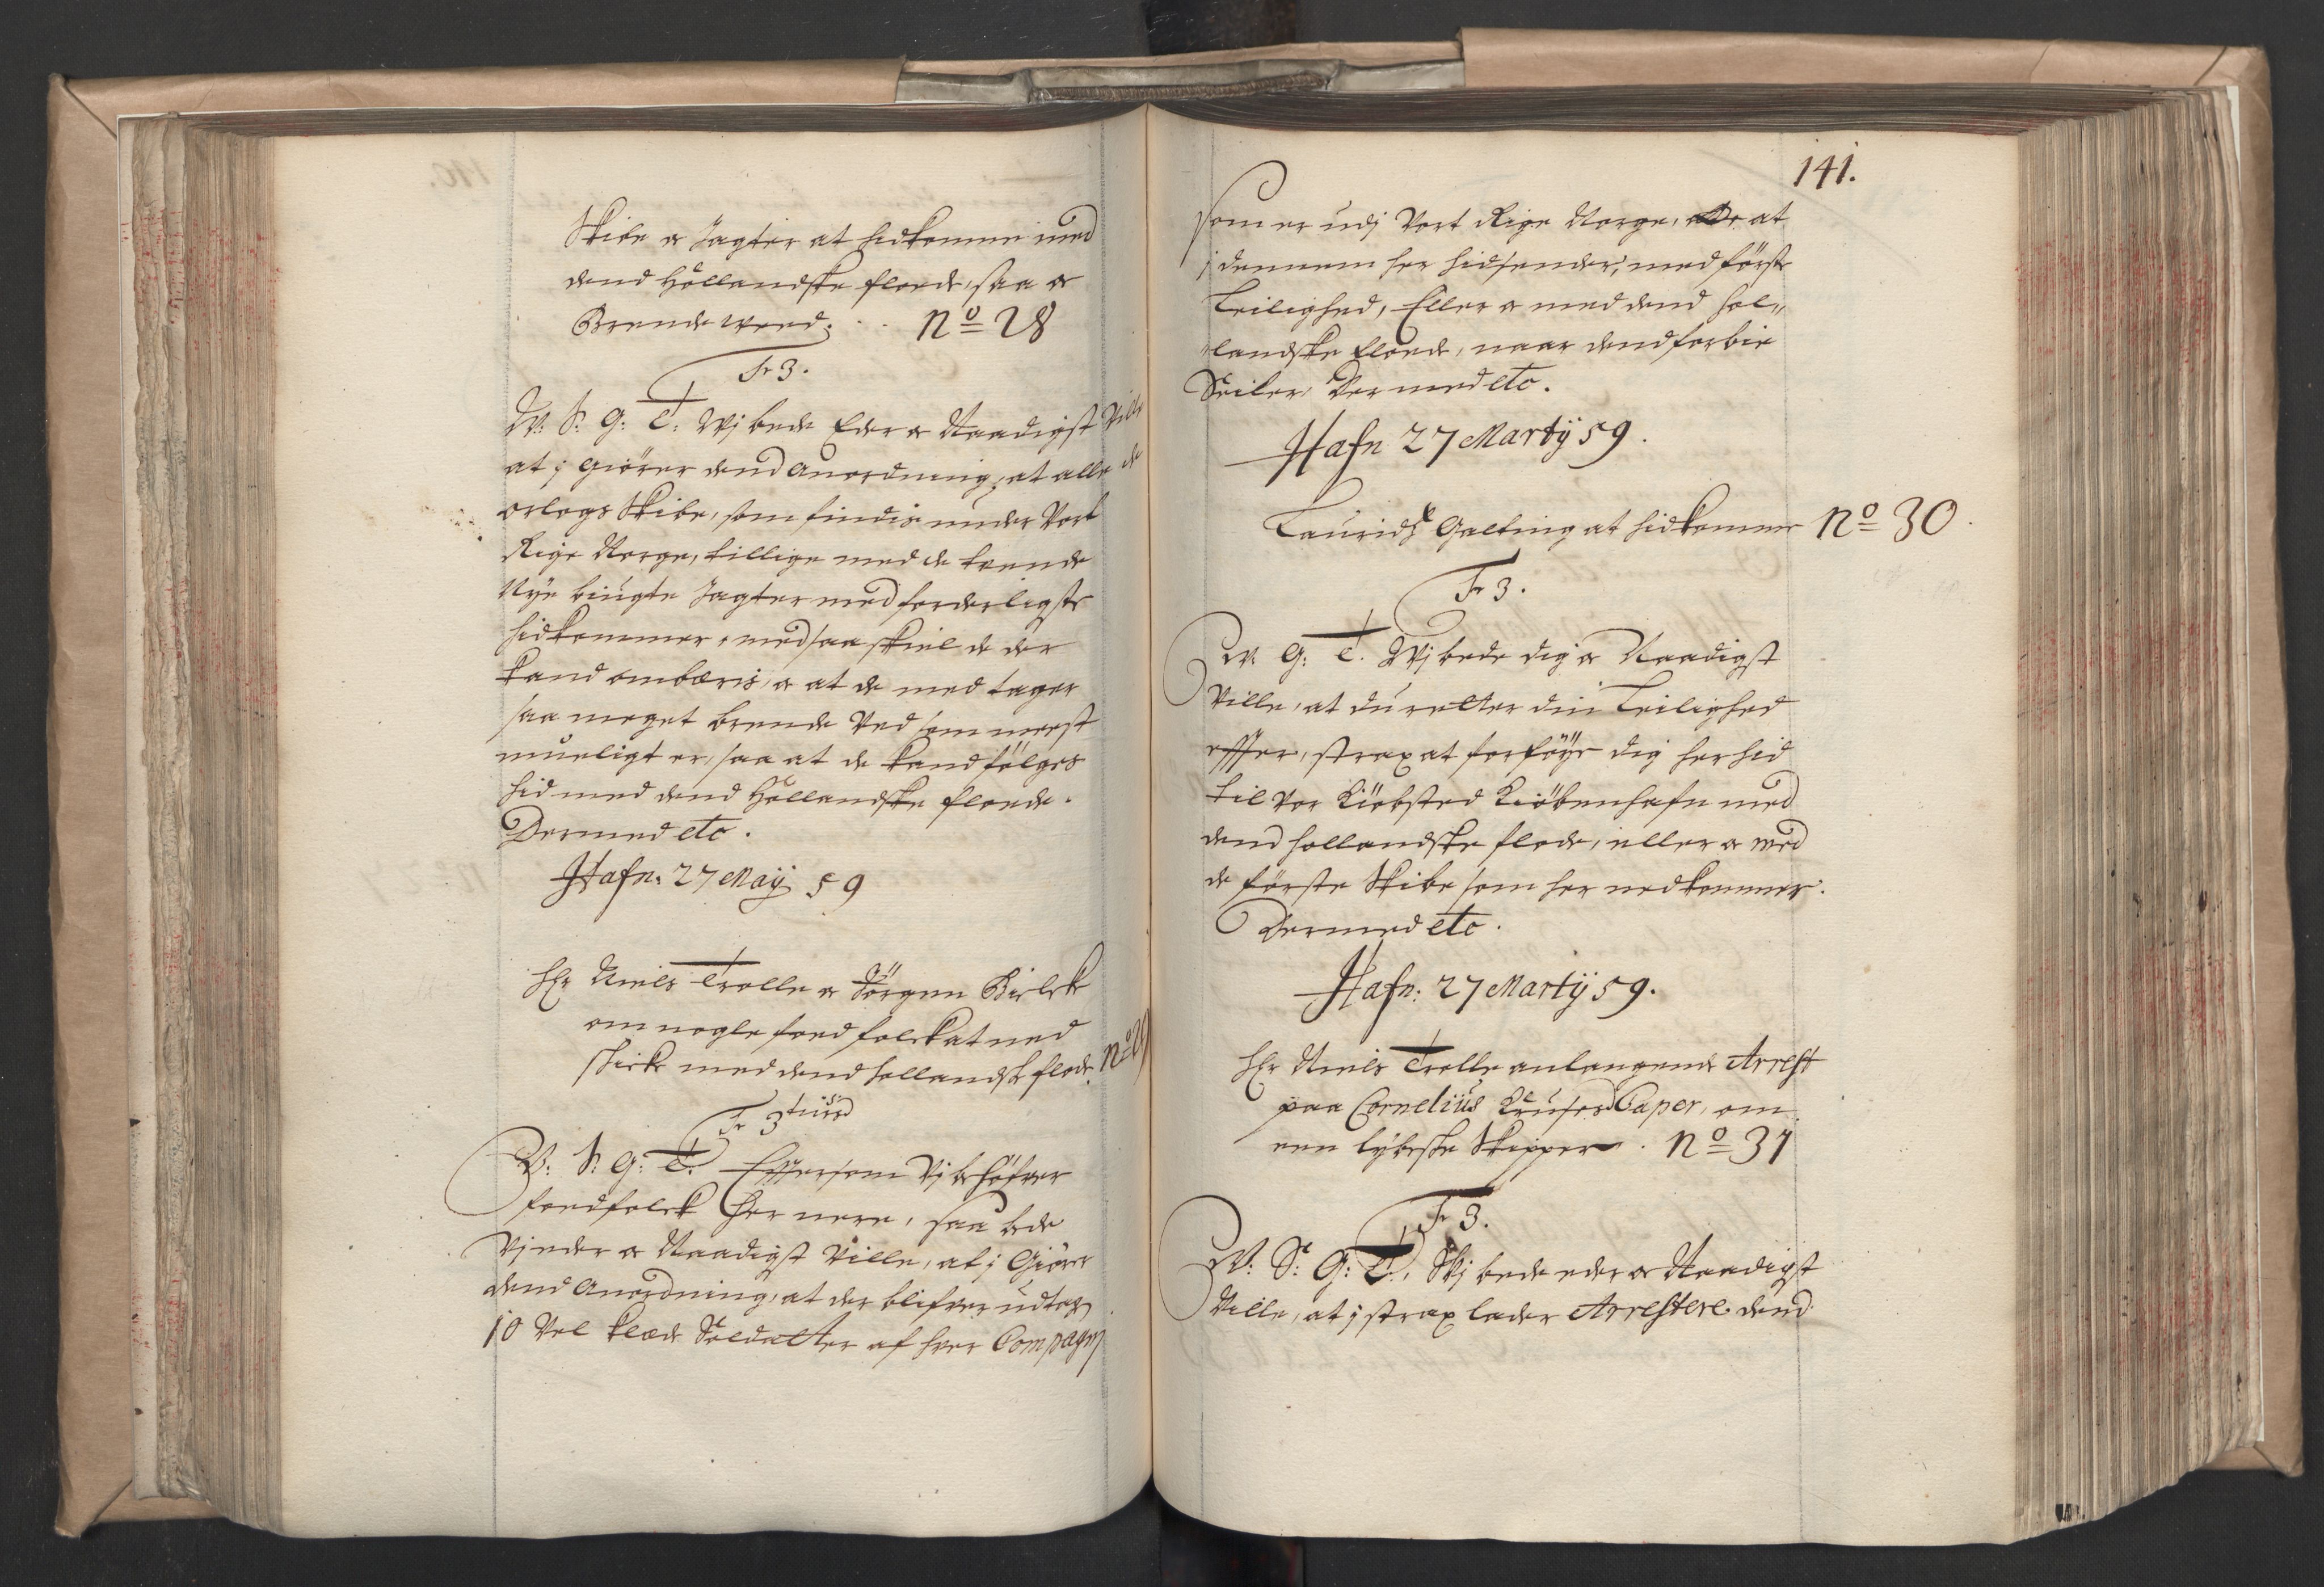 Skibe oc Jagter at hidkomme med
dend Hollandske floede, saa oc
Brende weed. N⁰ 28
Fr 3.
W: S: G: T: Wj bede Eder oc Naadigst ville
at j giörer dend anordning, at alle de
orlogs Skibe, som findis under Vort
Rige Norge, tillige med de tvende
Nye biugte Jagter med forderligste
hidkommer, med saa skiel de der
kand ombæris, oc at de med tager
saa meget brende Ved som meest
mueligt er, saa at de kand fölges
hid med dend Hollandske floede.
Dermed etc.
Hafn: 27 Maij 59
Hr Niels Trolle oc Jörgen Bielcke
om nogle foed folck at ned
skicke med dend hollandske flode. N⁰ 29
Fr 3
W: S: G: T. Effersom Vj behöfver
foedfolck her nere, saa bede
Vj eder oc Naadigst Ville, at j Giörer
dend Anordning, at der blifver udtagen
10 Vel klæde Soldatter af hver Compagnj
141.
som er udj Vort Rige Norge, at
j dennem her hidsender, med förste
Leilighed, Eller oc med dend hol„
landske floede, naar dend forbie
Seiler. Dermed etc.
Hafn 27 Martij 59.
Lauridtz Galtung at hidkomme N⁰ 30
Fr 3.
W. G: T. Wj bede dig oc Naadigst
Ville, at du retter din Leilighed
effter, strax at forföye dig her hid
til Vor Kiöbsted Kiöbenhafn med
dend hollandske flode, eller oc med
de förste Skibe som her nedkommer.
Dermed etc.
Hafn: 27 Martij 59.
Hr Niels Trolle anlangende Arrest
paa Cornelius Krusses Caper, om
een lybeske Skipper. N⁰ 31
Fr 3.
W: S: G: T. Wj bede eder oc Naadigst
Ville, at j strax lader Arrestere dend